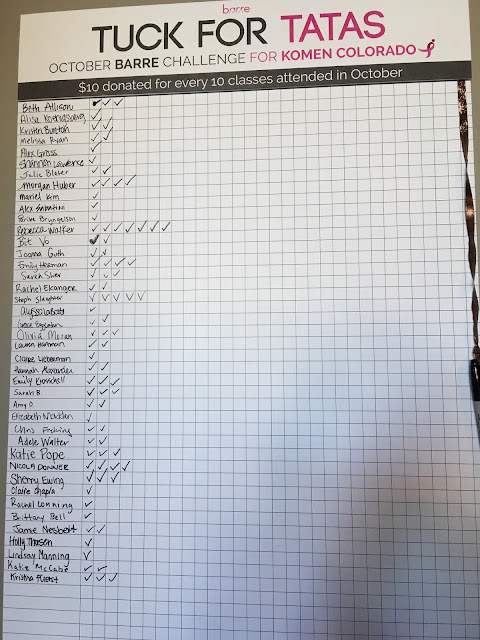 barre
TUCK FOR TATAS
OCTOBER BARRE CHALLENGE FOR KOMEN COLORADO
$10 donated for every 10 classes attended in October
Beth Allison
Alisa
Kristen Buntain
Melissa Ryan
Alex Gross
Shannon Lawrence
Julie Blaser
Morgan Huber
Mariel Kim
Alex
Bryngelson
Rebecca Walker
Bit Vo
Joanna Guth
Emily Herman
Sarah
Rachel Elcanger
Steph Slaughter
Alyssa
Grace
Olivia Moran
Lauren Hartman
Claire Lieberman
Hannah Alexander
Emily
Sarah B
Amy O.
Elizabeth Madden
Chris
Adele Walter
Katie Pope
NICOLA DONNER
Sherry Ewing
Claire Chapla
Rachel Lonning
Brittany Bell
Jamie Nesbeit
Holly Thosen
Lindsay Manning
Katie McCabe
Kristina